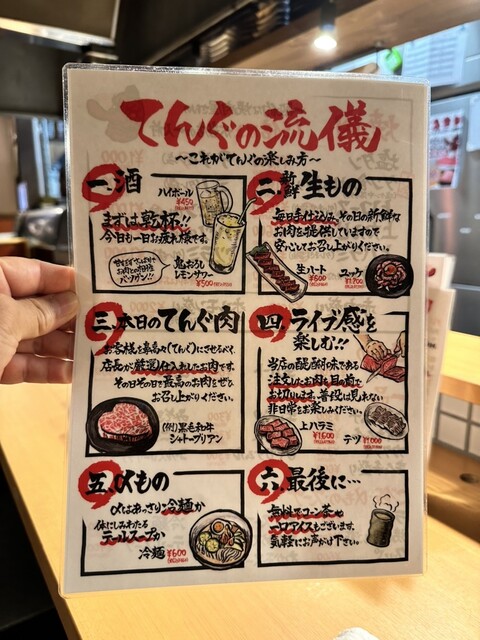 てんぐの流儀
～これがてんぐの楽しみ方～
一.酒
ハイボール
¥450
まずは乾杯!!
今日も一日お疲れ様です。
甘すぎずさっぱりで
お肉との相性
バツグン!!
鬼おろし
レモンサワー
¥500
二.新鮮生もの
毎日手仕込み。その日の新鮮な
お肉を提供していますので
安心してお召し上がりください。
生ハート
¥500
ユッケ
三.本日のてんぐ肉
お客様を鼻高々(てんぐ)にさせるべく、
店長が厳選仕入れしたお肉です。
その日その日で最高のお肉をぜひ
お召し上がりください。
(例)黒毛和牛
シャトーブリアン
四.ライブ感を
楽しむ!!
当店の醍醐味である
注文したお肉を目の前で
お切りします。普段は見れない
非日常をお楽しみください。
上ハラミ
¥1600
テツ
¥1,000
五.〆もの
〆はあっさり冷麺か
体にしみわたる
テールスープか
冷麺 ¥600
六.最後に…
無料でコーン茶や
ココアイスもございます。
気軽にお声がけ下さい。